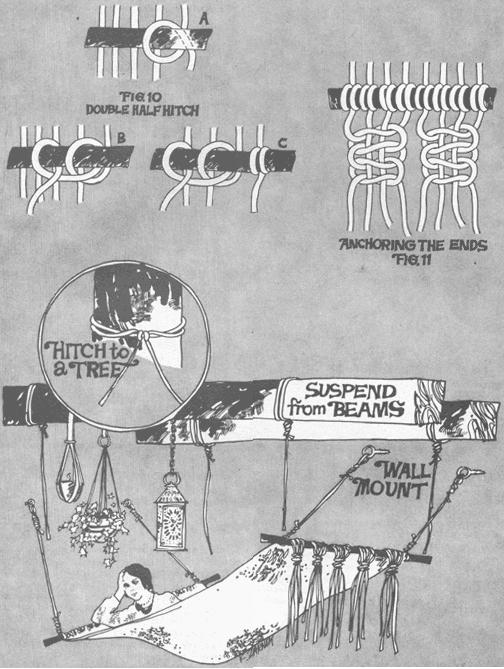 A
FIG.10
DOUBLE HALF HITCH
B
C
ANCHORING THE ENDS
FIG.11
HITCH to
a TREE
SUSPEND
from BEAMS
WALL
MOUNT